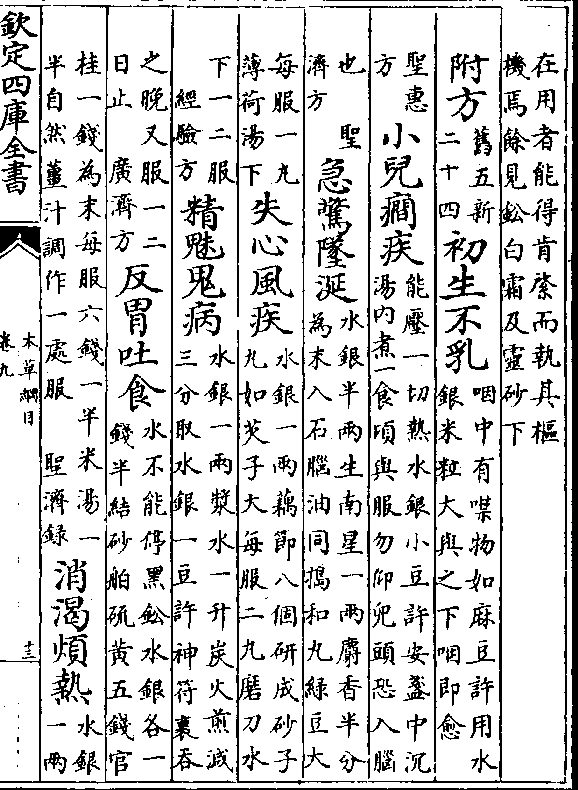 在用者能得肯綮而執其樞
機焉餘見鈆白霜及靈砂下
附方
舊五新
二十四
初生不乳
咽中有噗物如麻豆許用水
銀米粒大與之下咽即愈
聖惠
方
小兒癎疾
能壓一切熱水銀小豆許安盞中沉
湯内煮一食頃與服勿仰兒頭恐入腦
也 聖
濟方
急驚墜涎
水銀半兩生南星一兩麝香半分
為末入石腦油同搗和丸綠豆大
每服一丸
薄荷湯下
失心風疾
水銀一兩藕節八個研成砂子
丸如芡子大每服二丸磨刀水
下一二服
經驗方
精魅鬼病
水銀一兩漿水一升炭火煎減
三分取水銀一豆許神符裹吞
之晚又服一二
日止 廣濟方
反胃吐食
水不能停黑鈆水銀各一
錢半結砂舶硫黄五錢官
桂一錢為末每服六錢一半米湯一
半自然薑汁調作一處服 聖濟録
消渴煩熱
水銀
一兩
欽定四庫全書
本草綱目
卷九
十三